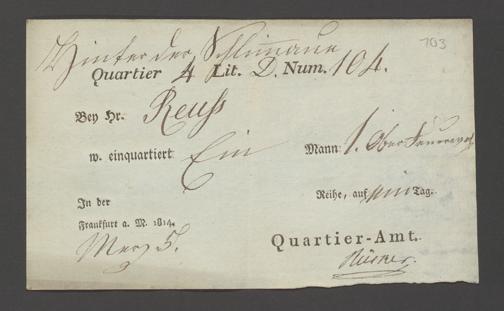 Hinter der Schlimmaue
703
Quartier 4 Lit. D. Num. 104.
Bey Hr. Reuß
w. einquartiert Ein Mann 1. Ober
Reihe, auf Tag.
In der
Frankfurt a. M. 1814.
Merz 5.
Quartier-Amt.